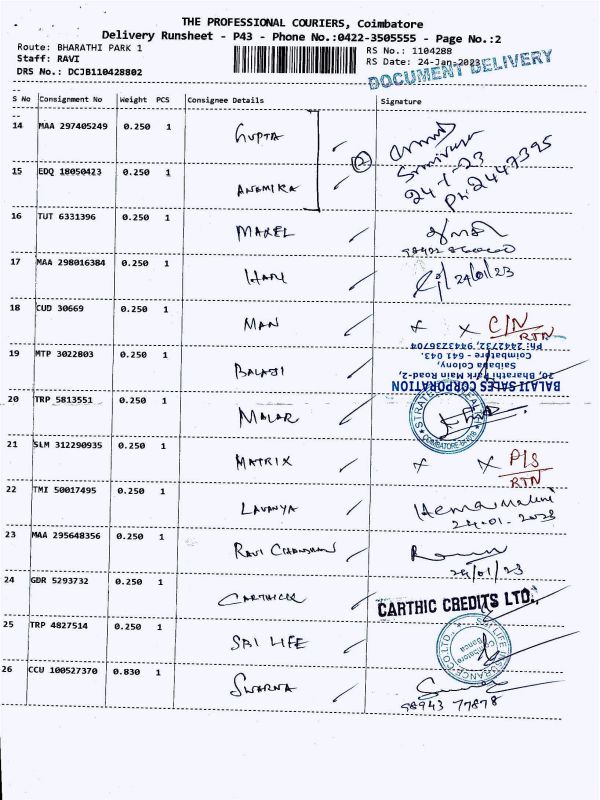 THE PROFESSIONAL COURIERS, Coimbatore
Delivery Runsheet - P43 - Phone No.:0422-3505555 - Page No.:2
Route: BHARATHI PARK 1 RS No.: 1104288
Staff: RAVI RS Date: 24-Jan-2023
DRS No.: DCJB110428802
DOCUMENT DELIVERY
S No Consignment No Weight PCS Consignee Details Signature
14 MAA 297405249 0.250 1 GUPTA
Srinivasan
24-1-23
Ph: 2447395
15 EDQ 18050423 0.250 1 ANAMIKA
2
16 TUT 6331396 0.250 1
17 MAA 298016384 0.250 1 HARI 24/01/23
18 CUD 30669 0.250 1 MAN x x C/N
RTN
19 MTP 3022803 0.250 1 BALAJI
BALAJI SALES CORPORATION
20, Bharathi Park Main Road-2,
Saibaba Colony,
Coimbatore - 641 043.
Ph: 2442732, 9443236704
20 TRP 5813551 0.250 1 MALAR
21 SLM 312290935 0.250 1 MATRIX x x P/S
RTN
22 TMI 50017495 0.250 1 LAVANYA Hemamalini
24-01-2023
23 MAA 295648356 0.250 1 RAVI CHANDRAN
24/01/23
24 GDR 5293732 0.250 1 CARTHICK CARTHIC CREDITS LTD.,
25 TRP 4827514 0.250 1 SBI LIFE
26 CCU 100527370 0.830 1 SWARNA
98943 77878